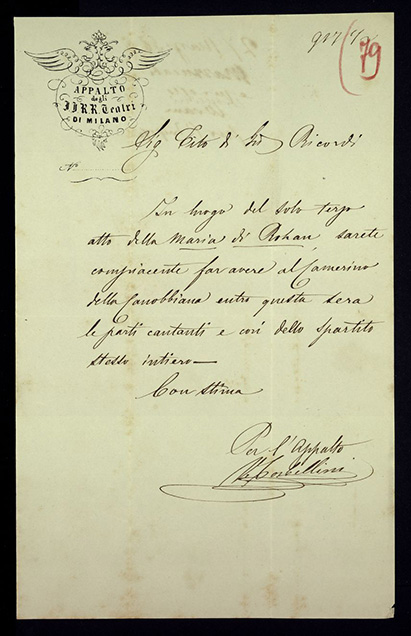 917 1/2
79
APPALTO
degli
II. RR. Teatri
DI MILANO
No
Sig Tito di Gio Ricordi
In luogo del solo terzo
atto della Maria di Rohan, sarete
compiacente far avere al Camerino
della Canobbiana entro questa sera
le parti cantanti e cori dello spartito
stesso intiero—
Con stima
Per l'Appalto
Corbellini